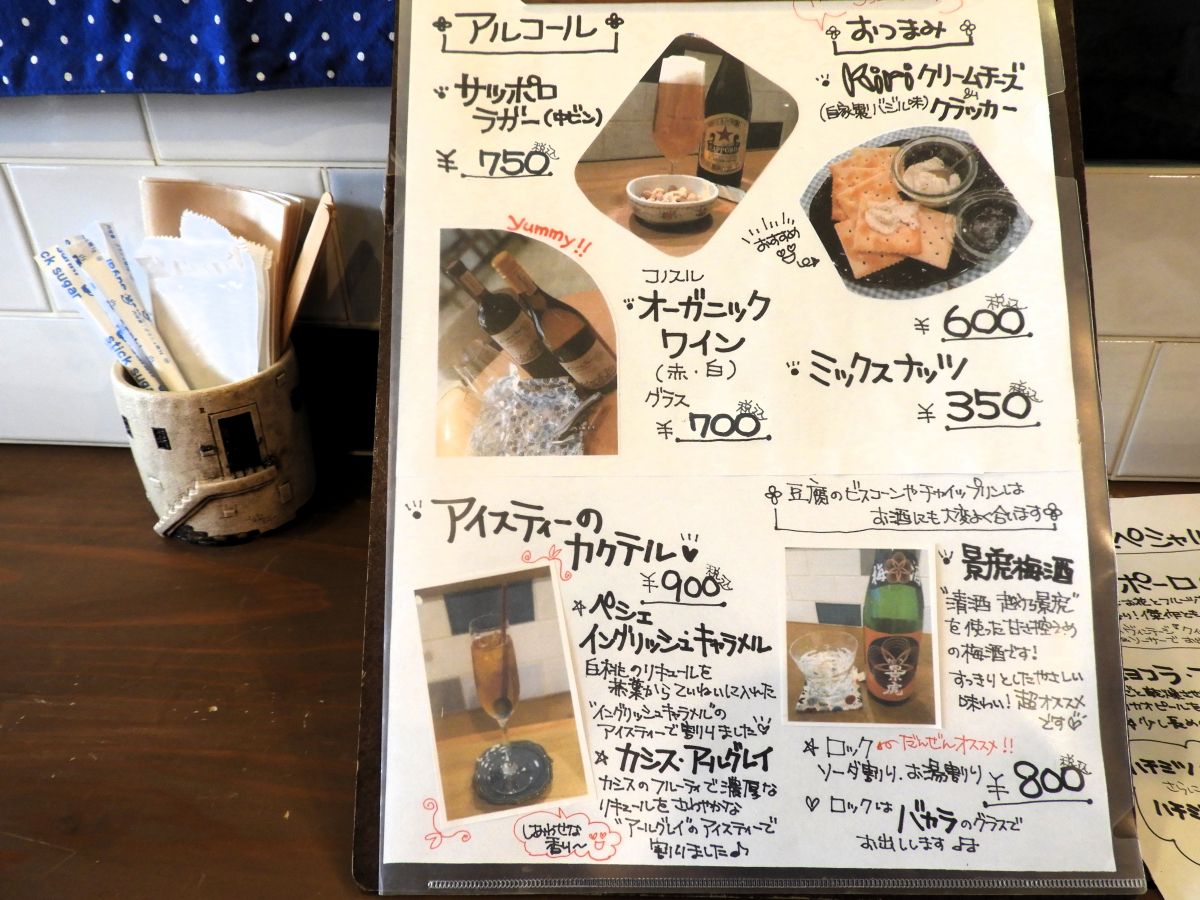 アルコール
サッポロ
ラガー(中ビン)
¥750 税込
SAPPORO
yummy!!
コノスル
オーガニック
ワイン
(赤・白)
グラス
¥700 税込
おつまみ
Kiri クリームチーズ
&
(自家製バジル味) クラッカー
おすすめ
¥600 税込
ミックスナッツ
¥350 税込
アイスティーの
カクテル
¥900 税込
☆ペシェ
イングリッシュキャラメル
白桃のリキュールを
茶葉からていねいに入れた
"イングリッシュキャラメル"の
アイスティーで割りました♡
★カシス・アールグレイ
カシスのフルーティで濃厚な
リキュールをさわやかな
"アールグレイ"のアイスティーで
割りました♪
しあわせな
香り〜
豆腐のビスコーンやチャイップリンは
お酒にも大変よく合います
景虎梅酒
"清酒 越乃景虎"
を使った甘さ控えめ
の梅酒です!
すっきりとしたやさしい
味わい! 超オススメ
です
梅酒
☆ロック だんぜんオススメ!!
ソーダ割り・お湯割り ¥800 税込
♡ロックは バカラのグラスで
お出しします♪
ck sugar
stick sugar